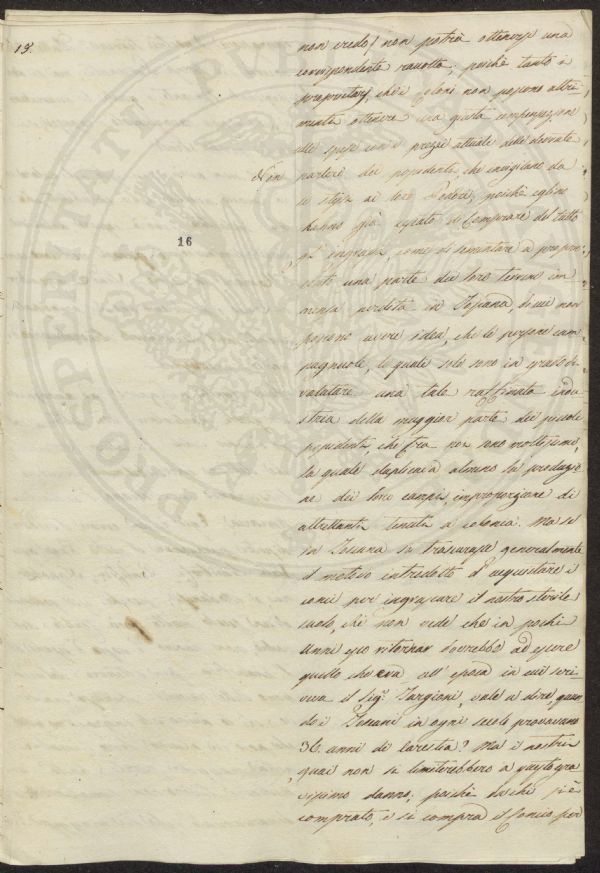 18.
16
non credo/ non potrà ottenersi una
corrispondente raccolta; poichè tanto i
proprietarj, che i Coloni non possono altri
menti ottenere una giusta compensazione
alle spese con i prezzi attuali delle derrate
Non parlerò dei possidenti, che invigilano da
se stessi ai loro Poderi, poichè eglino
hanno già cessato di comprare del tutto
gl' ingrassi, come di sementare a proprio
conto una parte dei loro terreni im
mensa perdita in Toscana, di cui non
possono avere idea, che le persone cam
pagnuole, le quali sole sono in grado di
valutare una tale raffinata indu
stria della maggior parte dei piccoli
possidenti, che fra noi sono moltissimi,
la quale duplicava almeno la produzio
ne dei loro campi, in proporzione di
altrettanti tenuti a colonia. Ma se
in Toscana si trascurasse generalmente
il metodo introdotto d' acquistare i
conci per ingrassare il nostro sterile
suolo, chi non vede che in pochi
anni esso ritornar dovrebbe ad essere
quello che era all' epoca in cui scri-
veva il Sig.r Targioni, vale a dire, quan
do i Toscani in ogni secolo provavano
36. anni di carestia? Ma i nostri
guai non si limiterebbero a questo gra
vissimo danno, poichè si è
comprato, e si compra il Concio per